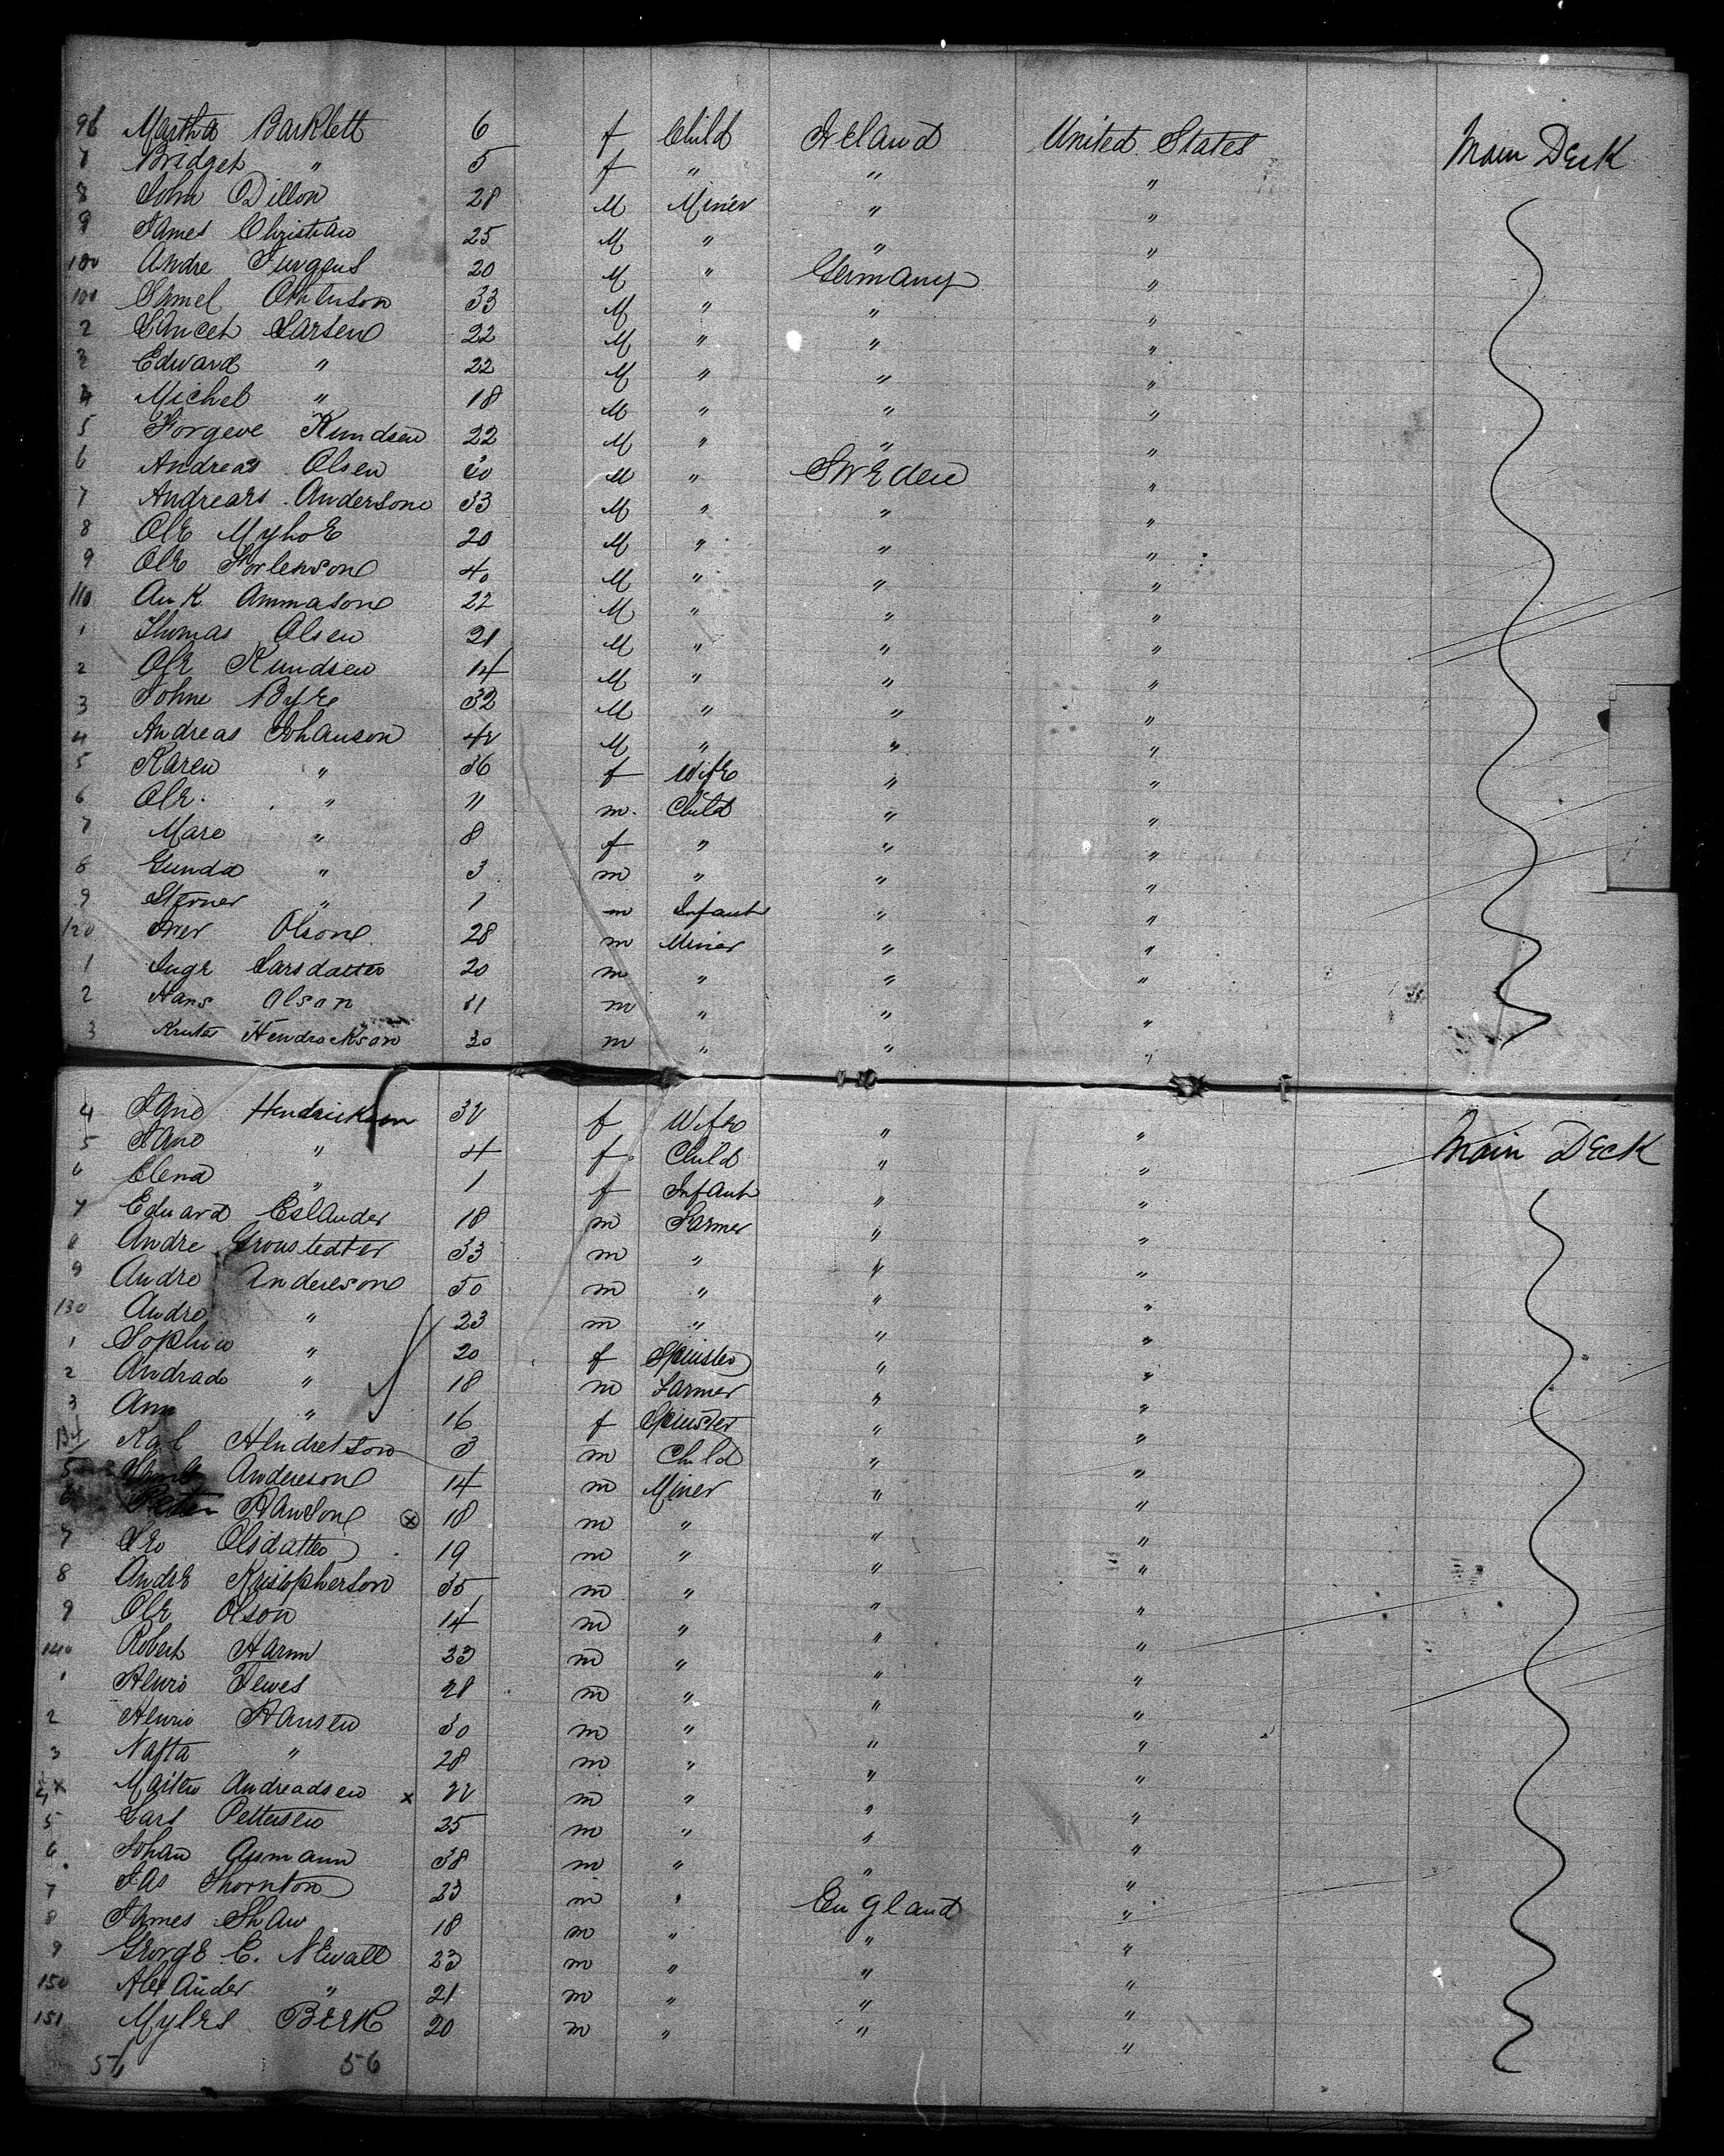 96 Martha Barklett 6 f Child Ireland United States Main Deck
7 Bridget " 5 f " " "
8 John Dillon 28 M Miner " "
9 James Christian 25 M " " "
100 Andre Jurgens 20 M " Germany "
101 Samel 33 M " " "
2 Larsen 22 M " " "
3 Edward " 22 M " " "
4 Michel " 18 M " " "
5 Kundsen 22 M " " "
6 Andreas Olsen M " Sweden "
7 Andrears Andersone 33 M " " "
8 Ole Myhoe 20 M " " "
9 Ole 40 M " " "
110 Ammasone 22 M " " "
1 Thomas Olsen 21 M " " "
2 Ole Kundsen 14 M " " "
3 Johne 32 M " " "
4 Andreas Johanson 42 M " " "
5 Karen " 36 f Wife " "
6 Ole " 11 m Child " "
7 Mare " 8 f " " "
8 Gunda " 3 m " " "
9 " 1 m Infant " "
120 Iver Olsone 28 m Miner " "
1 Inge Larsdatter 20 m " " "
2 Hans Olson 11 m " " "
3 Hendrockson 30 m " " "
4 Jane Hendrickson 32 f Wife " " Main Deck
5 Jane " 4 f Child " "
6 Elena " 1 f Infant " "
7 Eduard Eslander 18 m Farmer " "
8 Andre Gronstedter 33 m " " "
9 Andre Andersone 50 m " " "
130 Andre " 23 m " " "
1 Sophie " 20 f Spinster " "
2 Andrade " 18 m Farmer " "
3 Ann " 16 f Spinster " "
134 Karl Hendretson 3 m Child " "
5 Andersone 14 m Miner " "
6 Peter Hansone x 18 m " " "
7 Olsdatter 19 m " " "
8 Andre Kristopherson 35 m " " "
9 Ole Olson 14 m " " "
140 Robert Harm 33 m " " "
1 Henri Dewes 28 m " " "
2 Henrie Hansen 30 m " " "
3 Nafta " 28 m " " "
4 x Maiten Andreadsen x 22 m " " "
5 Carl Pettersen 25 m " " "
6 Johan Ausmann 38 m " " "
7 Jas Thornton 23 m " England "
8 James Shaw 18 m " " "
9 George C. Newall 23 m " " "
150 Alexander " 21 m " " "
151 Myles Berk 20 m " " "
56 56